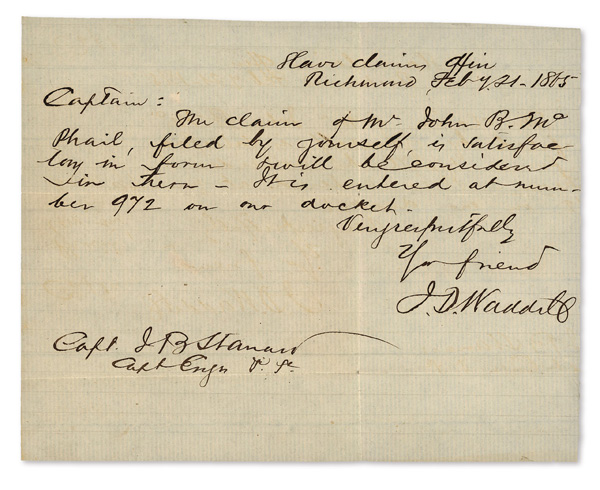 Slave claims Office
Richmond, Feby 21 - 1865
Captain:
The claim of Mr. John B. Mc
Phail, filed by yourself, is satisfac
tory in form & will be considered
in turn - It is entered at num-
ber 972 on our docket.
Very respectfully
Yr friend
J. D. Waddell
Capt. J B Stanard
Capt Engr